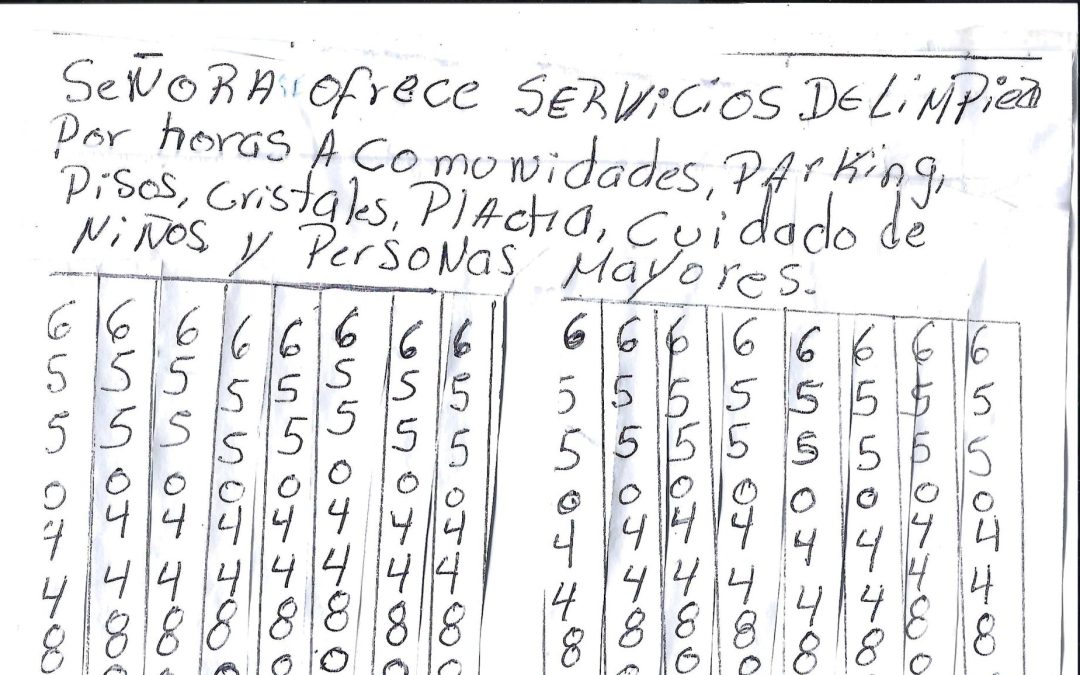 SeÑORA ofrece SERViCiOS DE LiMPieza
Por horas A Comunidades, PArKing,
Pisos, Cristales, PlAcHA, Cuidado de
NiÑOS y PersoNas Mayores.
6 6 6 6 6 6 6 6 6 6 6 6 6 6 6 6
5 5 5 5 5 5 5 5 5 5 5 5 5 5 5 5
5 5 5 5 5 5 5 5 5 5 5 5 5 5 5 5
0 0 0 0 0 0 0 0 0 0 0 0 0 0 0 0
4 4 4 4 4 4 4 4 4 4 4 4 4 4 4 4
4 4 4 4 4 4 4 4 4 4 4 4 4 4 4 4
8 8 8 8 8 8 8 8 8 8 8 8 8 8 8 8